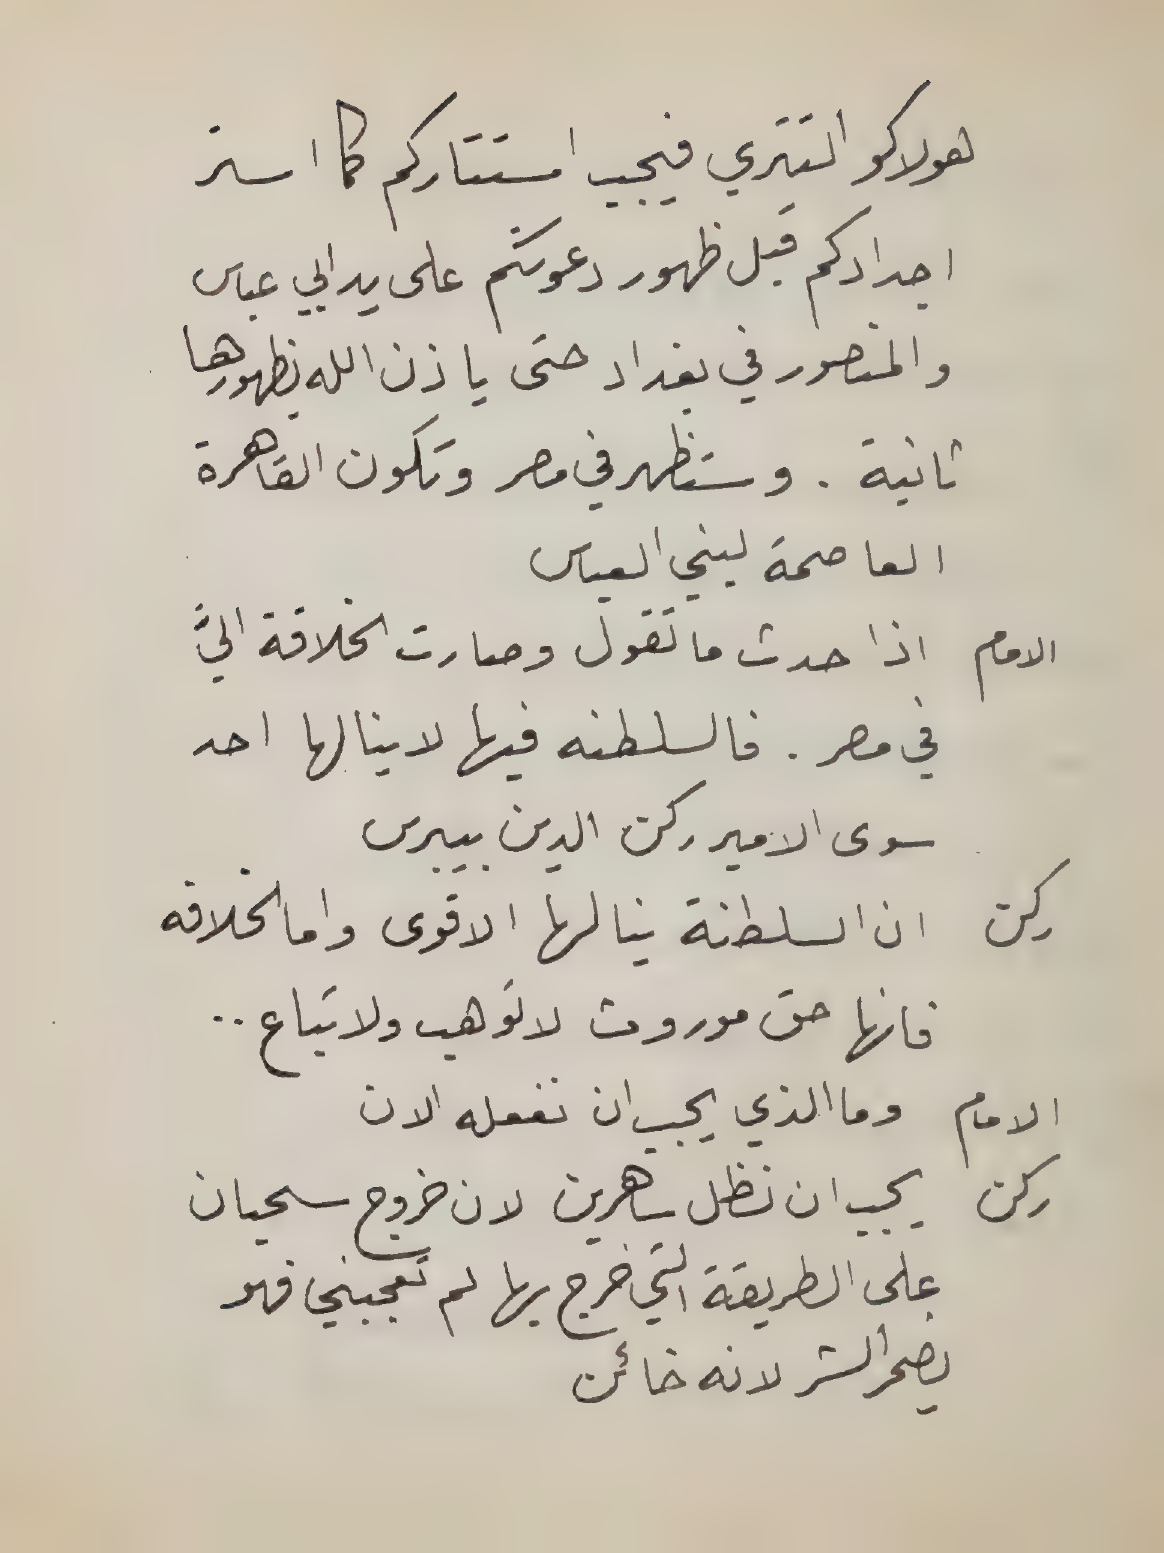 هولاكو التتري فيجب استتاركم كما استتر
اجدادكم قبل ظهور دعوتكم على يد ابي عباس
والمنصور في بغداد حتى ياذن الله بظهورها
ثانية . وستظهر في مصر وتكون القاهرة
العاصمة لبني العباس
الامام اذا حدث ما تقول وصارت الخلافة اليَّ
في مصر . فالسلطنه فيها لا ينالها احد
سوى الامير ركن الدين بيبرس
ركن ان السلطنة ينالها الاقوى واما الخلافه
فانها حق موروث لا توهب ولا تباع ..
الامام وما الذي يجب ان نفعله الان
ركن يجب ان نظل ساهرين لان خروج سحبان
على الطريقة التي خرج بها لم تعجبني فهو
يضمر الشر لانه خائن